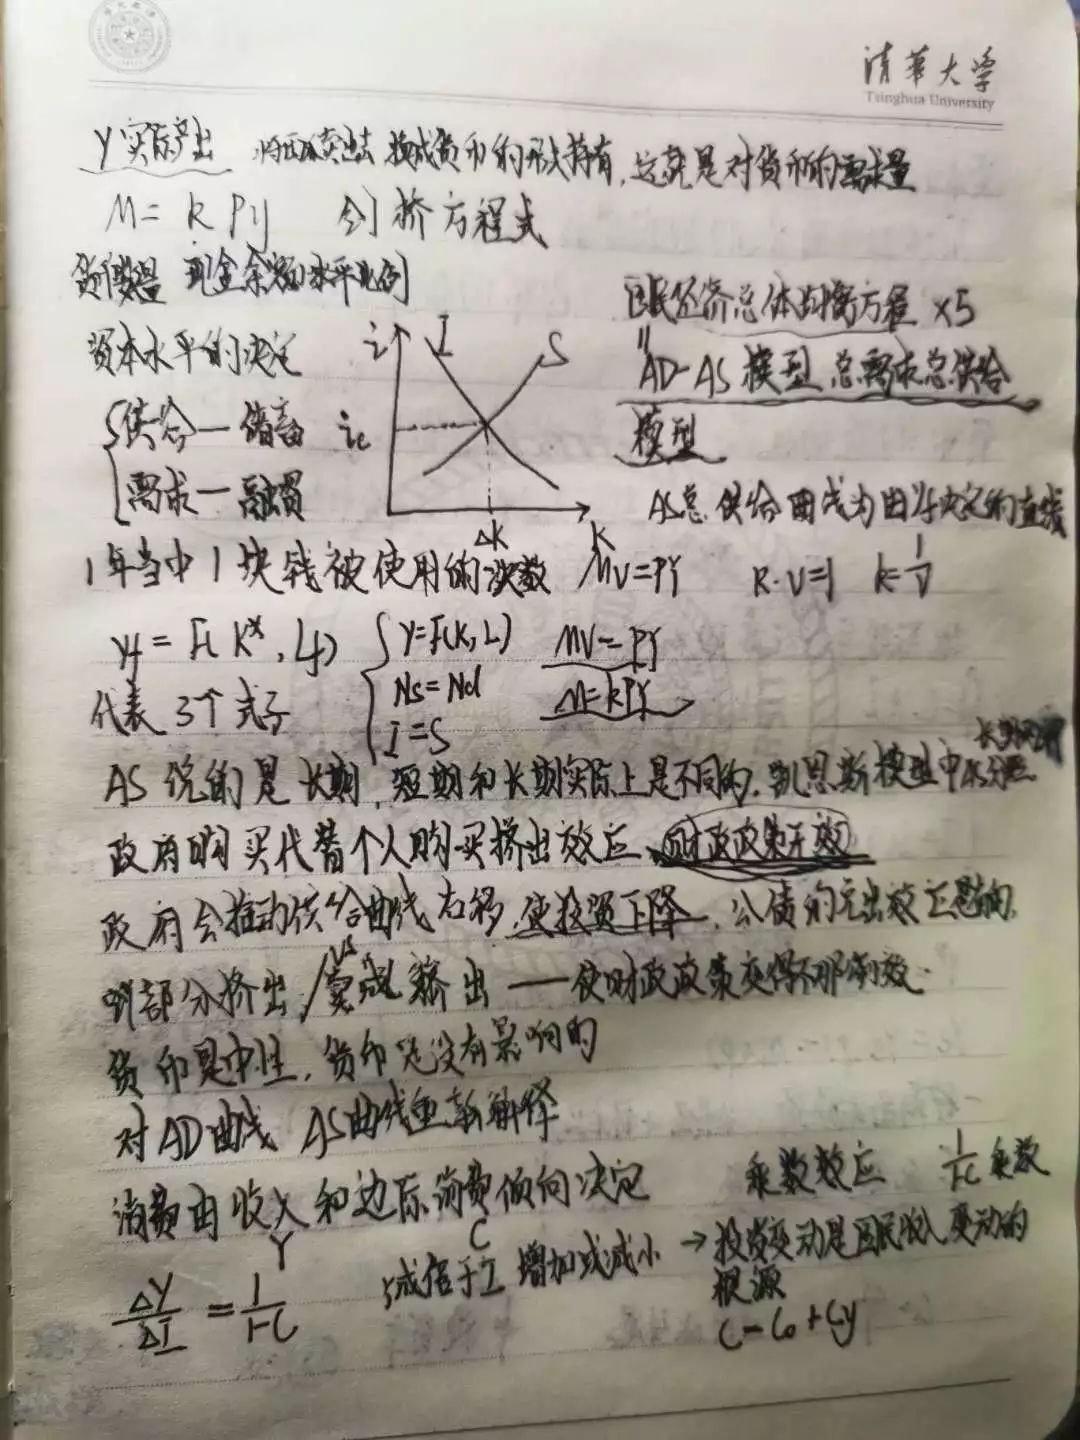 清華大学
Tsinghua University
Y实际产出 卖出去 换成货币的形式持有,这就是对货币的需求量
M= k Py 剑桥方程式
货币数量 现金余额的水平比例
国民经济总体均衡方程 ×5
资本水平的决定
i I S
=
AD-AS 模型 总需求总供给
供给—储蓄 ie
模型
需求—融资
AS总供给曲线为由yf决定的直线
ΔK K
1年当中1块钱被使用的次数 MV=PY k·V=1 k=1/V
yf = F(K*, Lf) Y=F(K,L) MV=PY
代表 3个式子 Ns=Nd M=kPY
I=S
AS说的是长期,短期和长期实际上是不同的.凯恩斯模型中
政府购买代替个人购买挤出效应, 财政政策无效
政府会推动供给曲线右移,使投资下降,公债的
部分挤出/vs完成挤出——使财政政策变得不那么有效.
货币是中性,货币是没有影响的
对AD曲线 AS曲线重新解释
消费由收入和边际消费倾向决定 乘数效应 1/1-c 乘数
Y C
ΔY/ΔI = 1/1-C 于I 增加或减小 → 投资变动是国民收入变动的
根源
C=C0+Cy